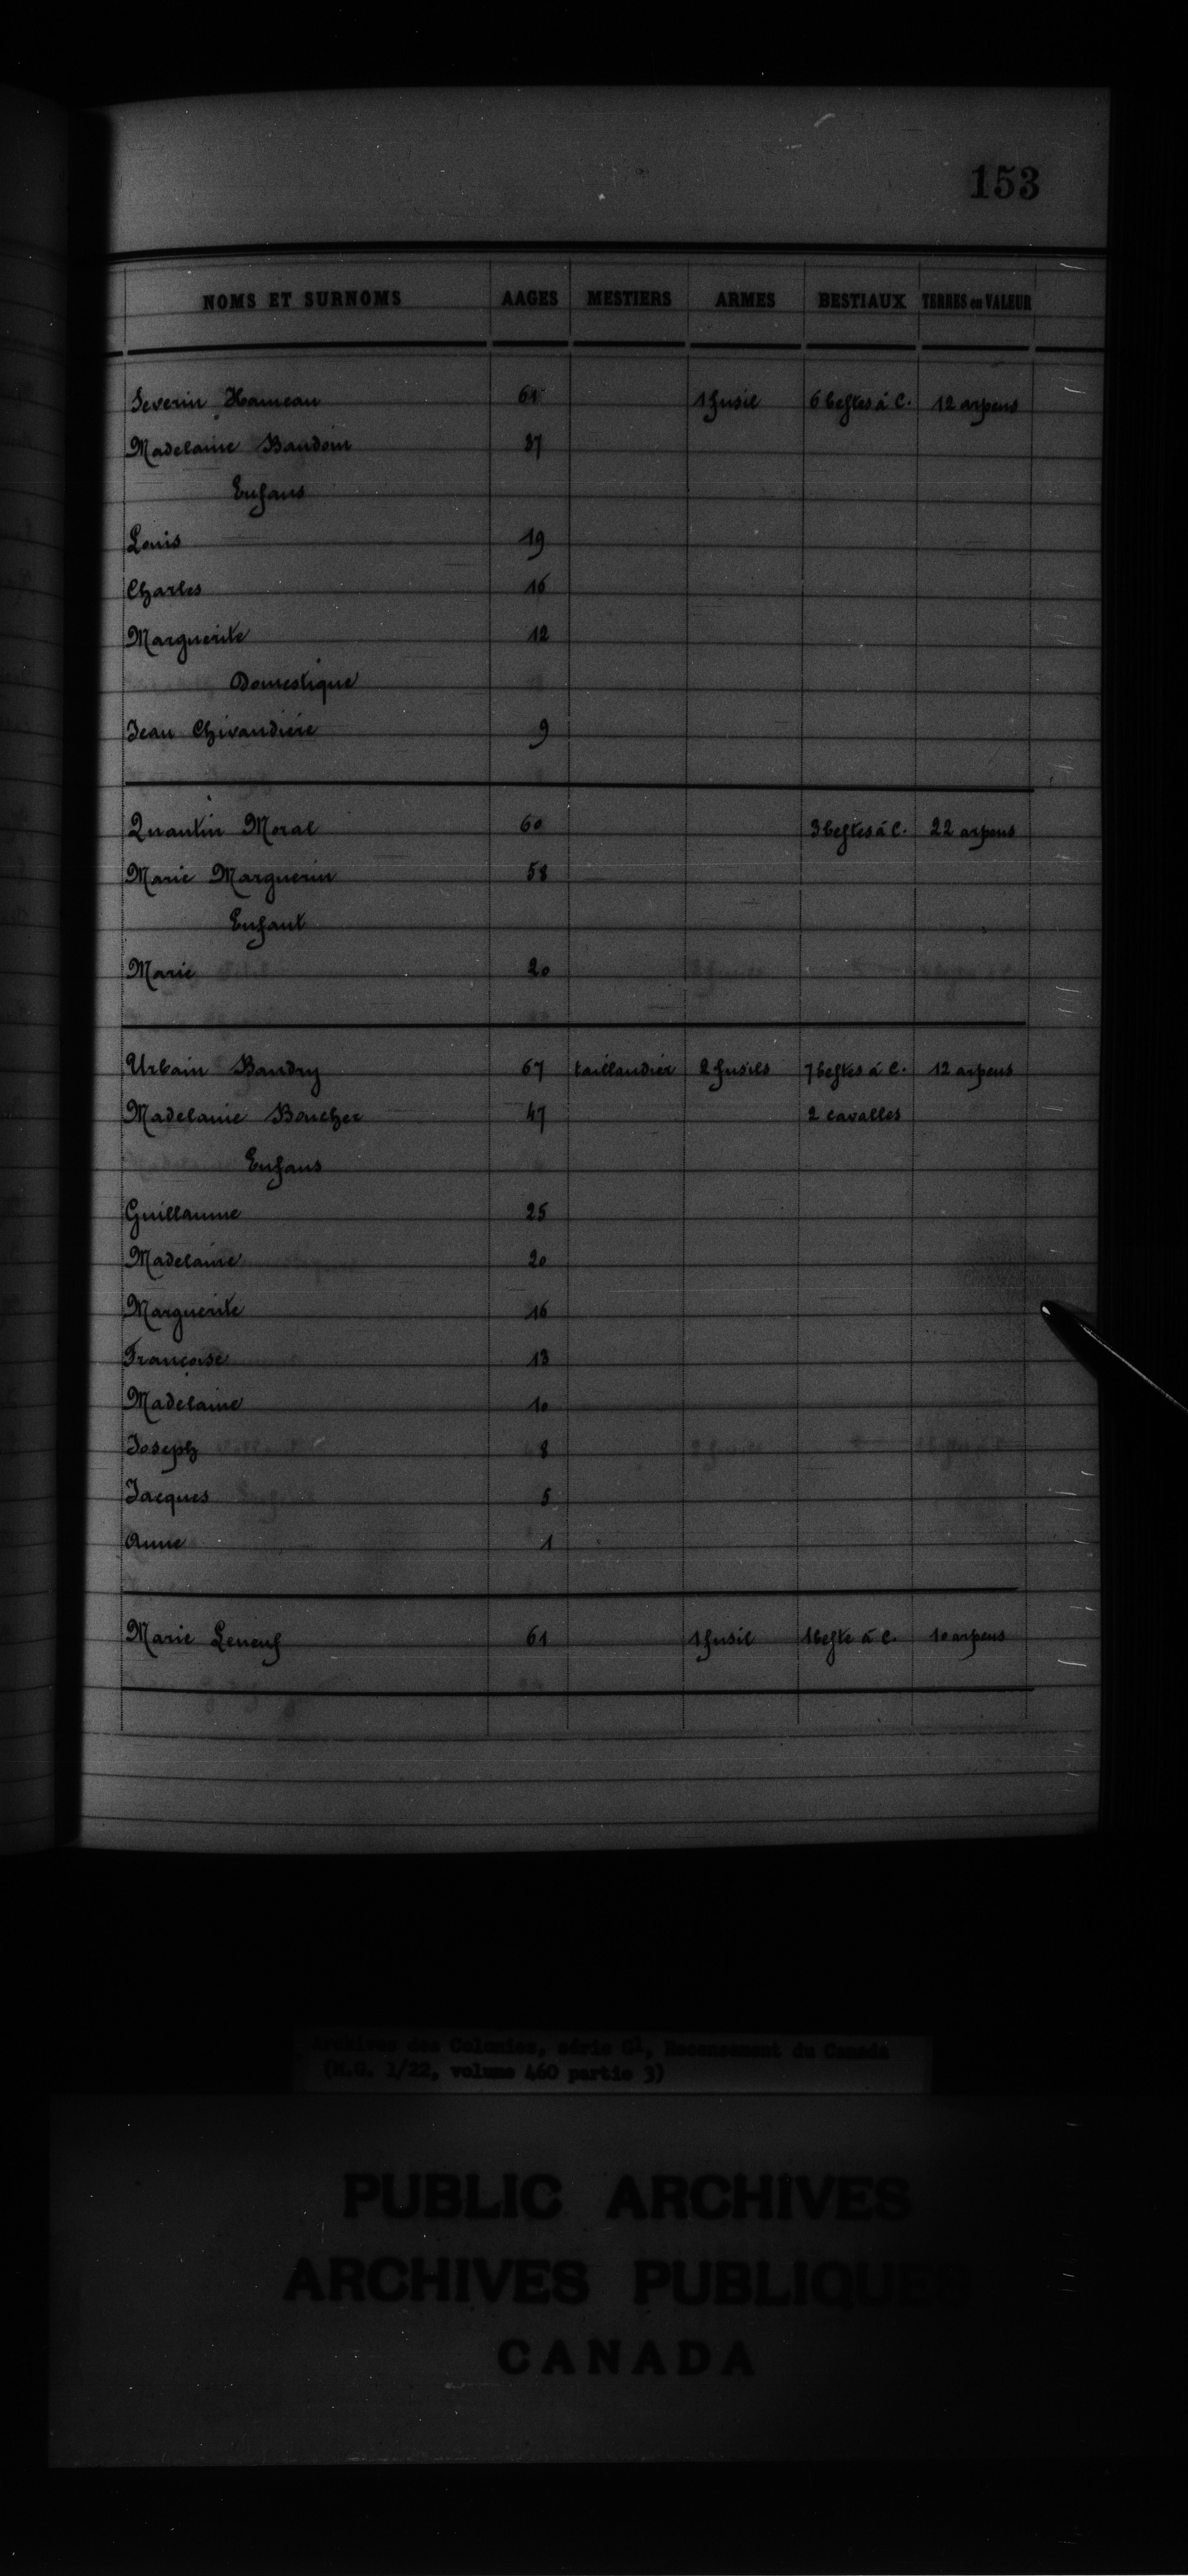 153
NOMS ET SURNOMS AAGES MESTIERS ARMES BESTIAUX TERRES en VALEUR
Severin Hameau 61 1 fusil 6 bestes à C. 12 arpens
Madelaine Baudoin 37
Enfans
Louis 19
Charles 16
Marguerite 12
Domestique
Jean Chivaudière 9
Quantin Moral 60 3 bestes à C. 22 arpens
Marie Marguerin 58
Enfant
Marie 20
Urbain Baudry 67 taillandier 2 fusils 7 bestes à C. 12 arpens
Madelaine Boucher 47 2 cavalles
Enfans
Guillaume 25
Madelaine 20
Marguerite 16
Françoise 13
Madelaine 10
Joseph 8
Jacques 5
Anne 1
Marie Leneuf 61 1 fusil 1 beste à C. 10 arpens
Archives des Colonies, série G1, Recensement du Canada
(M.G. 1/22, volume 460 partie 3)
PUBLIC ARCHIVES
ARCHIVES PUBLIQUES
CANADA